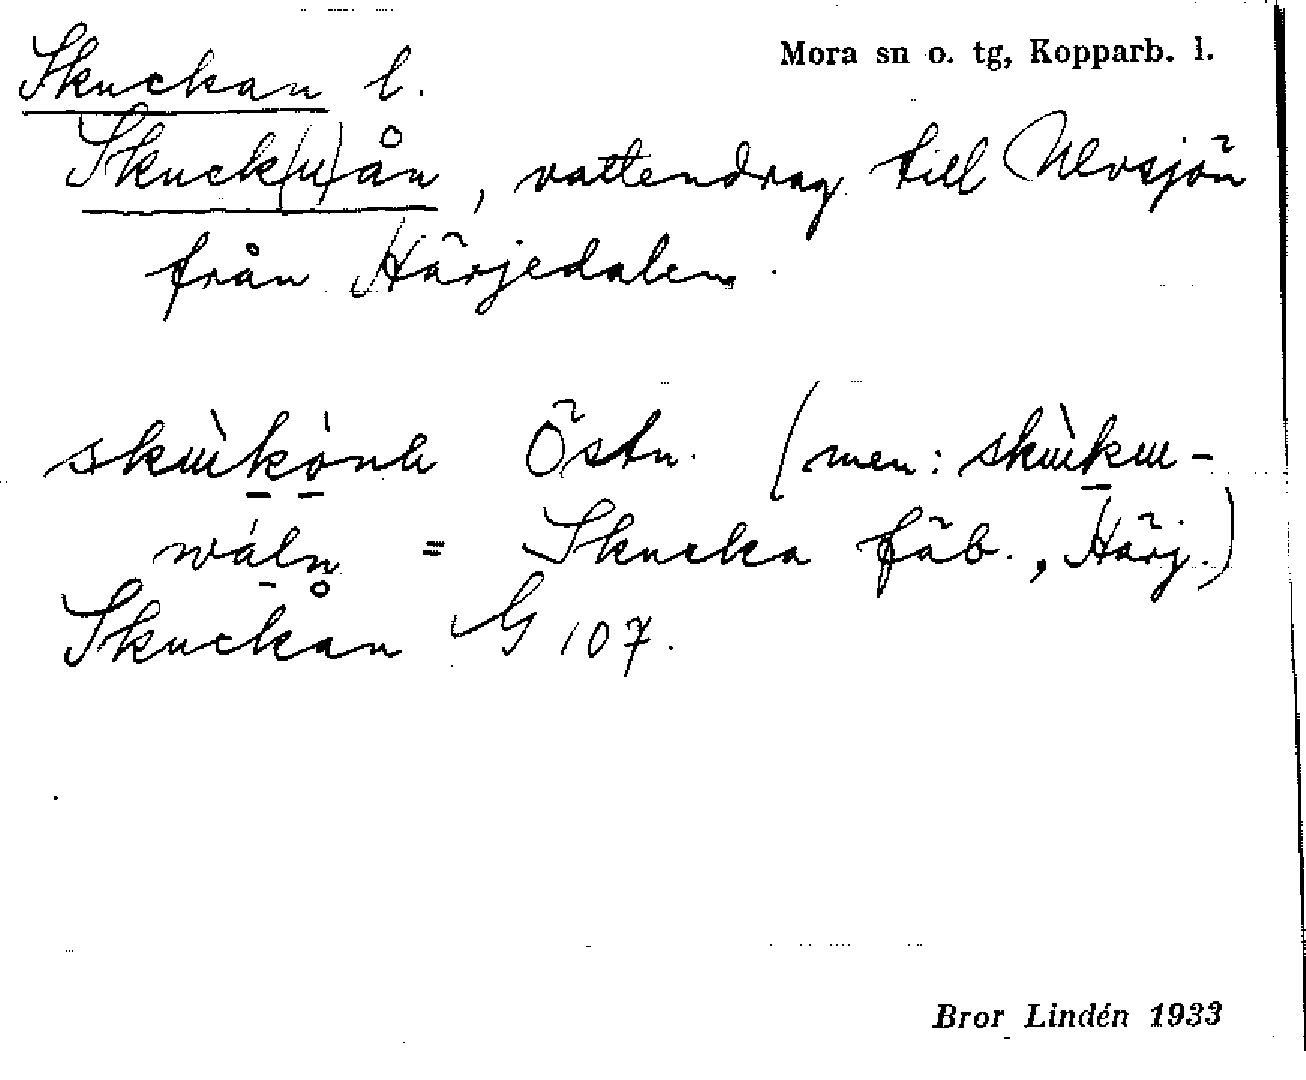 Mora sn o. tg, Kopparb. l.
Skuckan l.
Skuck(u)ån, vattendrag till Ulvsjön
från Härjedalen.
Östn. (men:
= Skucka fäb., Härj.)
Skuckån G 107.
Bror Lindén 1933